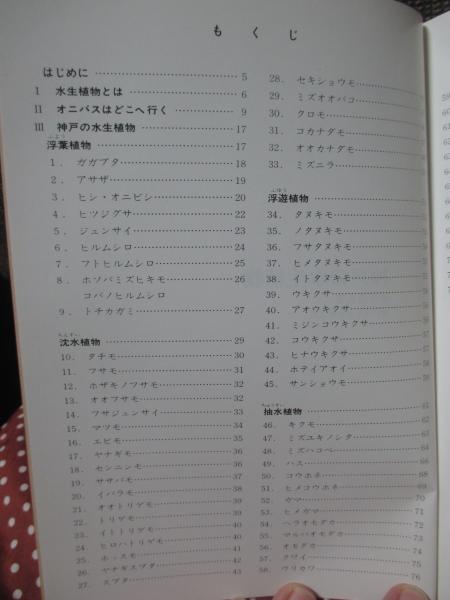 もくじ
はじめに……………5
I 水生植物とは……………6
II オニバスはどこへ行く……………9
III 神戸の水生植物……………17
ふよう
浮葉植物……………17
1. ガガブタ……………18
2. アサザ……………19
3. ヒシ・オニビシ……………20
4. ヒツジグサ……………22
5. ジュンサイ……………23
6. ヒルムシロ……………24
7. フトヒルムシロ……………25
8. ホソバミズヒキモ……………26
コバノヒルムシロ
9. トチカガミ……………27
ちんすい
沈水植物……………29
10. タチモ……………30
11. フサモ……………31
12. ホザキノフサモ……………32
13. オオフサモ……………32
14. フサジュンサイ……………33
15. マツモ……………34
16. エビモ……………35
17. ヤナギモ……………36
18. センニンモ……………36
19. ササバモ……………37
20. イバラモ……………38
21. オオトリゲモ……………39
22. トリゲモ……………39
23. イトトリゲモ……………40
24. ヒロハトリゲモ……………40
25. ホッスモ……………41
26. ヤナギスブタ……………42
27. スブタ……………43
28. セキショウモ
29. ミズオオバコ
30. クロモ
31. コカナダモ
32. オオカナダモ
33. ミズニラ
ふゆう
浮遊植物
34. タヌキモ
35. ノタヌキモ
36. フサタヌキモ
37. ヒメタヌキモ
38. イトタヌキモ
39. ウキクサ
40. アオウキクサ
41. ミジンコウキクサ
42. コウキクサ
43. ヒナウキクサ
44. ホテイアオイ
45. サンショウモ
ちゅうすい
抽水植物……………61
46. キクモ……………62
47. ミズユキノシタ……………63
48. ミズハコベ
49. ハス
50. コウホネ……………68
51. ヒメコウホネ……………69
52. ガマ……………70
53. ヒメガマ……………71
54. ヘラオモダカ……………72
55. マルバオモダカ……………73
56. オモダカ……………74
57. クワイ……………75
58. ウリカワ……………76